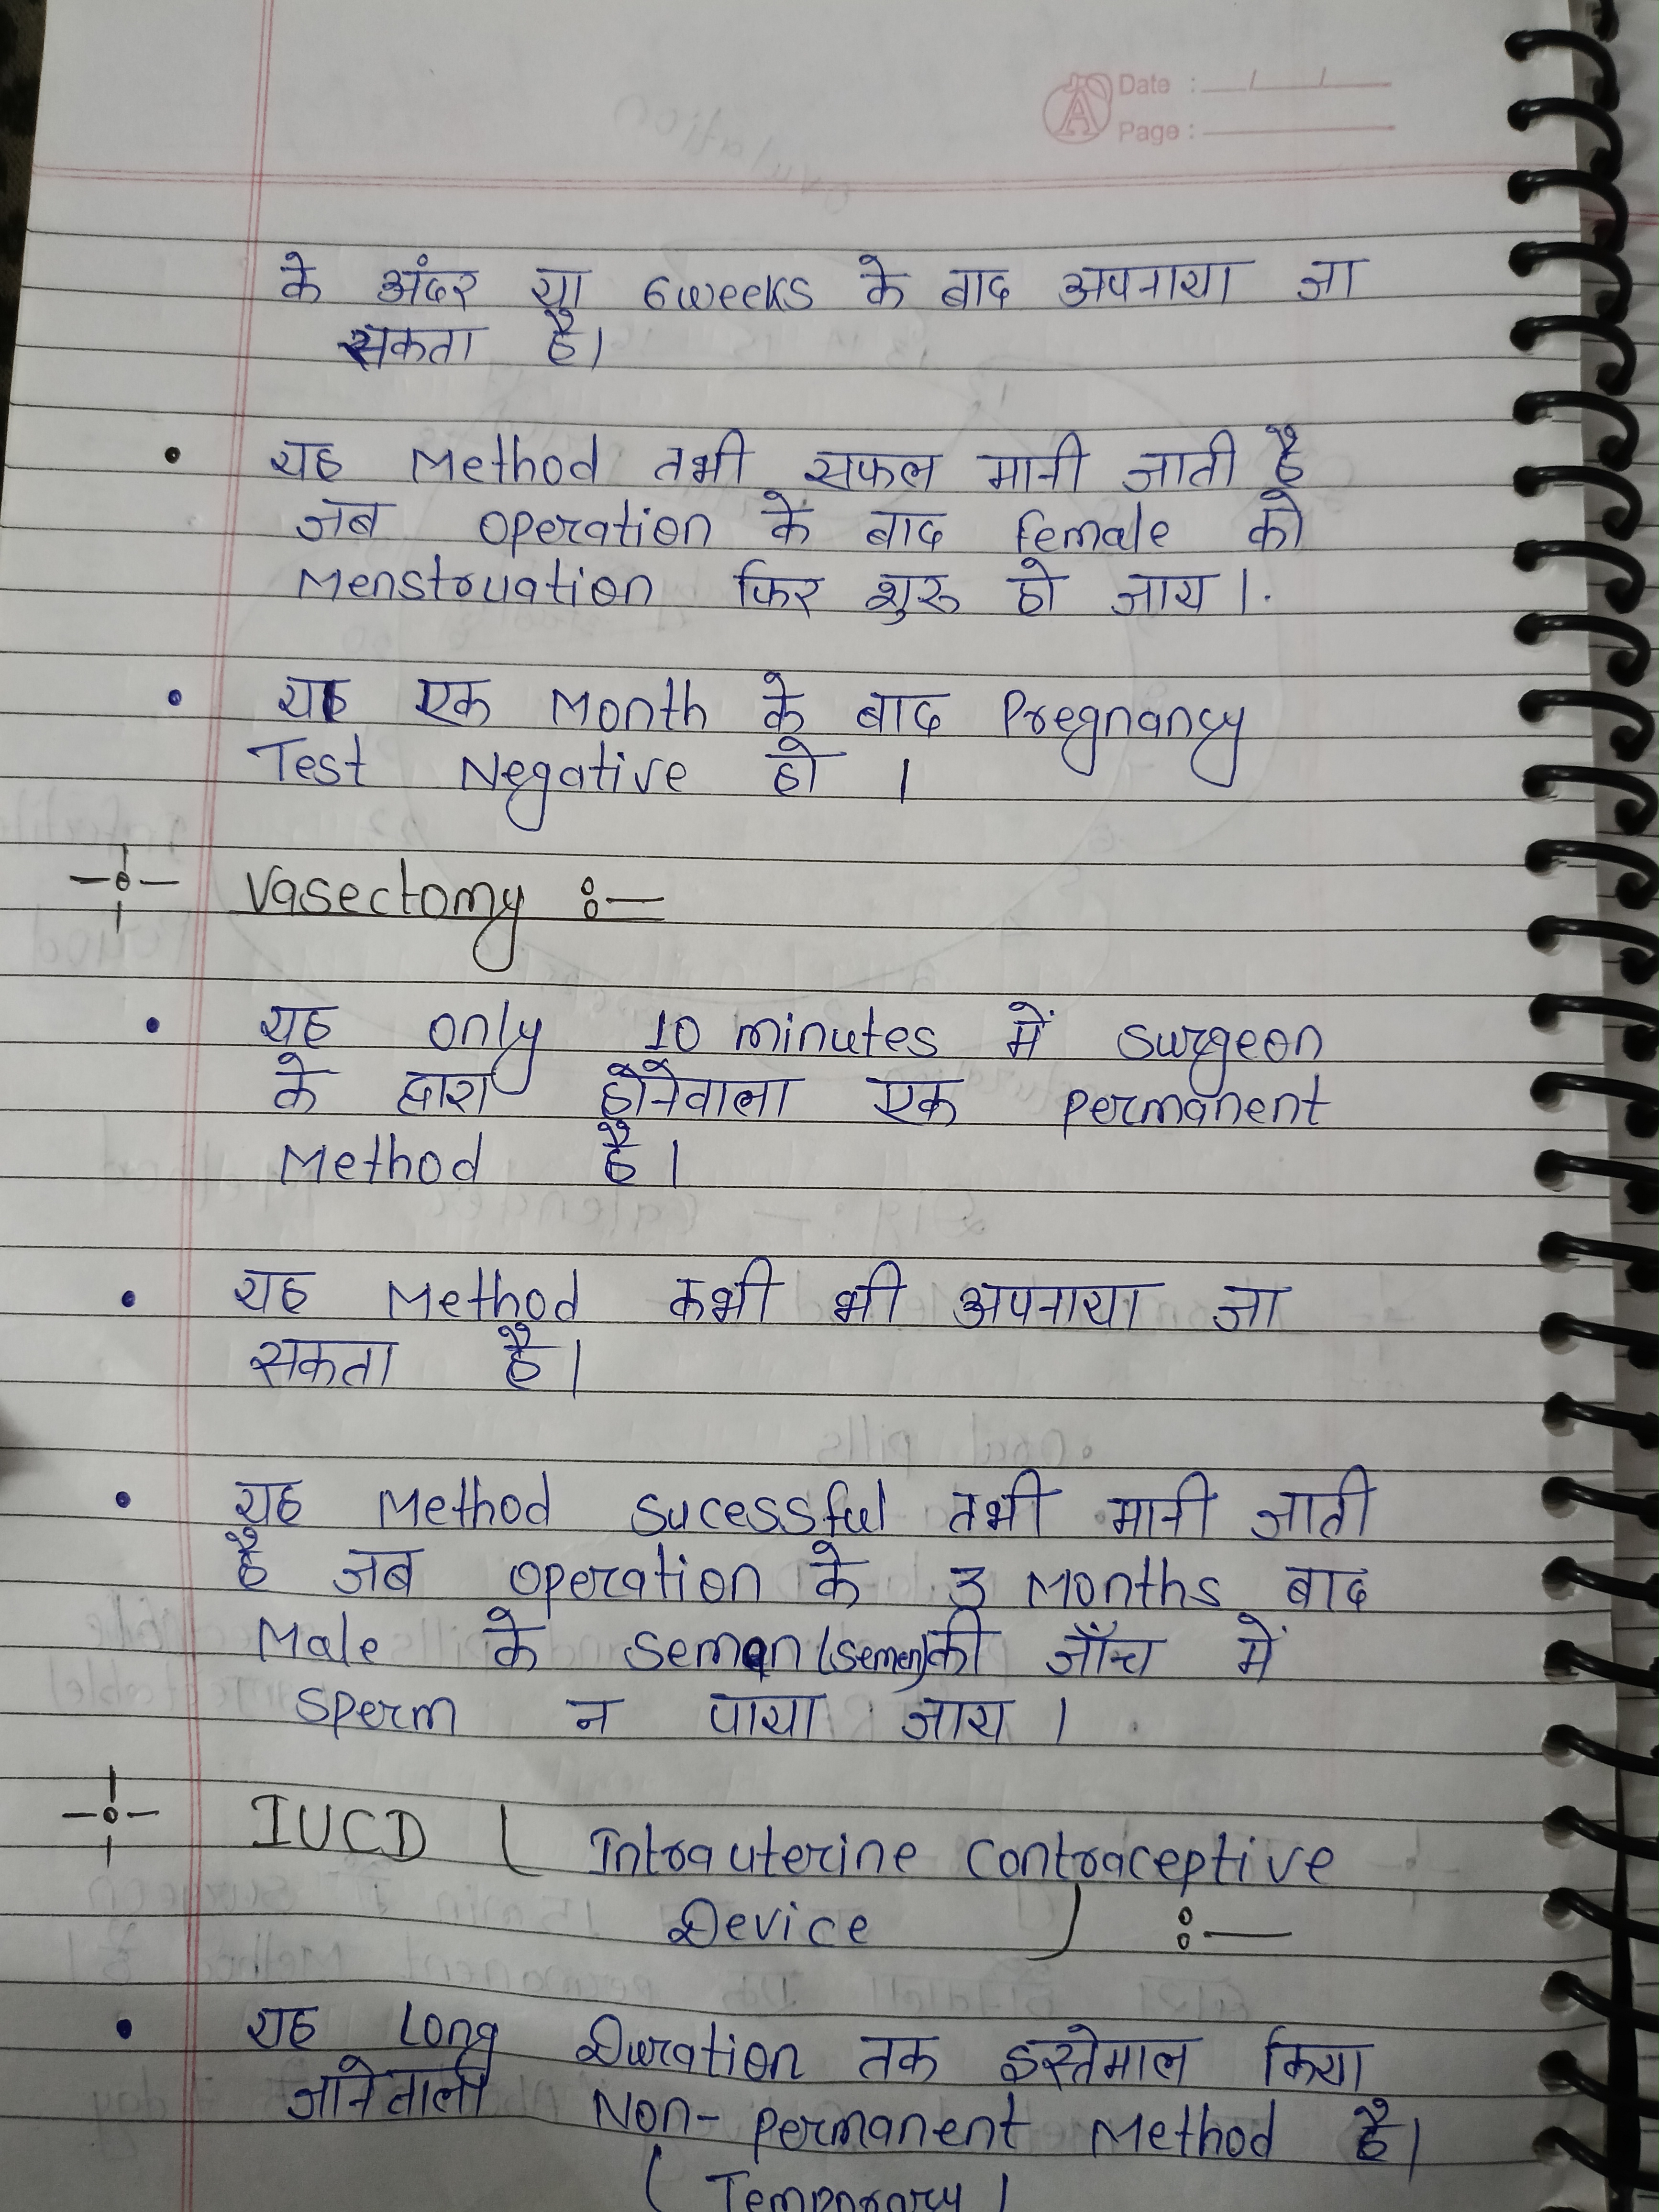 Date :
Page :
के अंदर या 6 weeks के बाद अपनाया जा
सकता है।
• यह Method तभी सफल मानी जाती है
जब operation के बाद female को
Menstruation फिर शुरू हो जाय।.
• यह एक Month के बाद Pregnancy
Test Negative हो ।
Vasectomy :—
• यह only 10 minutes में surgeon
के द्वारा होनेवाला एक permanent
Method है।
• यह Method कभी भी अपनाया जा
सकता है।
• यह Method sucessful तभी मानी जाती
है जब operation के 3 Months बाद
Male के (semen) की जाँच में
sperm न पाया जाय ।
IUCD ( Intrauterine Contraceptive
Device ) :—
• यह Long Duration तक इस्तेमाल किया
जानेवाली Non-permanent Method है।
( Temporary )